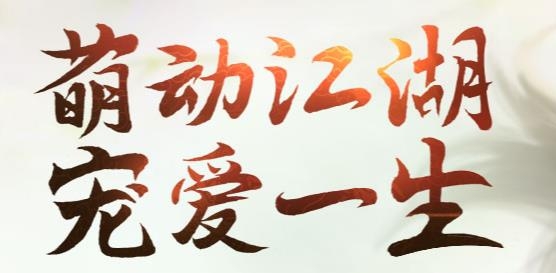 萌动江湖
宠爱一生